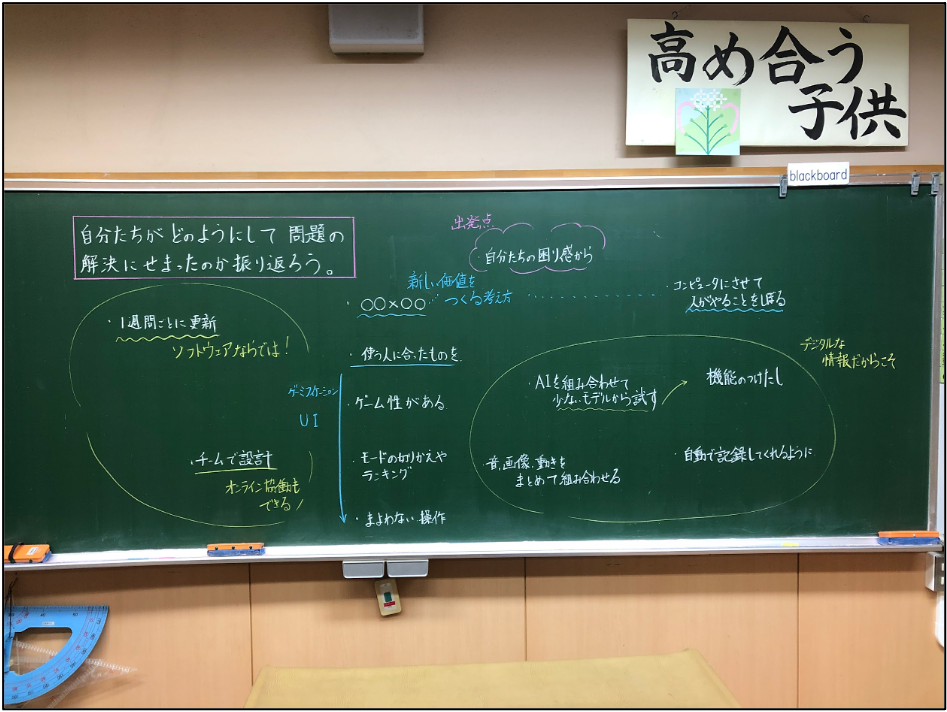 高め合う
子供
blackboard
自分たちが どのようにして 問題の
解決にせまったのか振り返ろう。
出発点
自分たちの困り感から
新しい価値を
つくる考え方
・○○×○○
・コンピュータにさせて
人がやることをしぼる
・1週間ごとに更新
ソフトウェアならでは！
・チームで設計
オンライン協働も
できる！
・使う人に合ったものを
ゲーミフィケーション
UI
・ゲーム性がある
・モードの切りかえや
ランキング
・まよわない操作
デジタルな
情報だからこそ
・AIを組み合わせて
少ないモデルから試す
機能のつけたし
・音、画像、動きを
まとめて組み合わせる
・自動で記録してくれるように